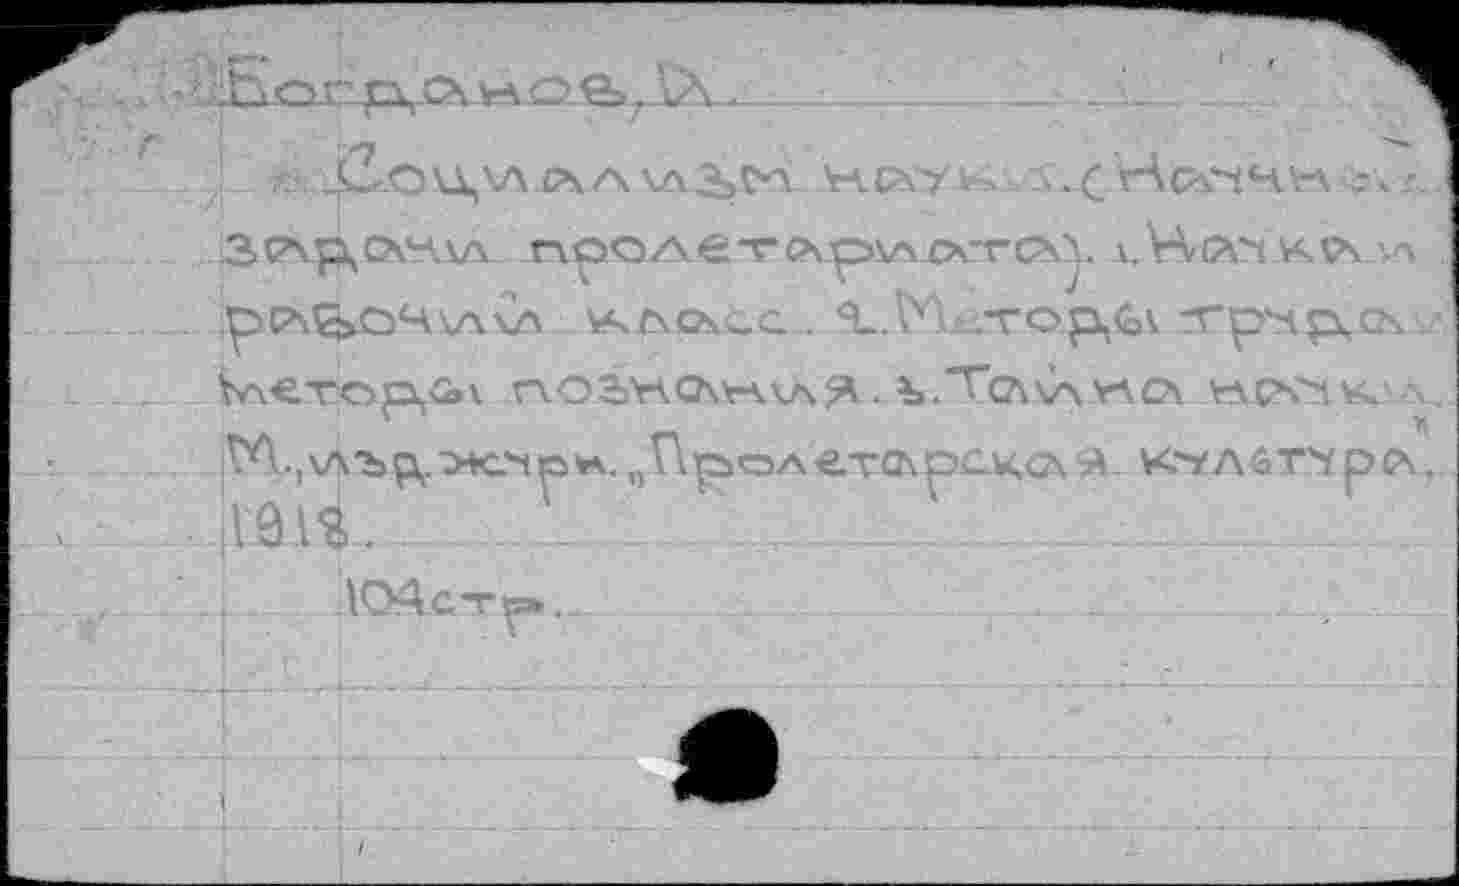 Богданов, А.
Социализм науки. (Научные
задачи пролетариата). 1. Наука и
рабочий класс. 2. Методы труда и
методы познания. 3. Тайна науки.
М., изд. журн. „Пролетарская культура",
1918.
104 стр.